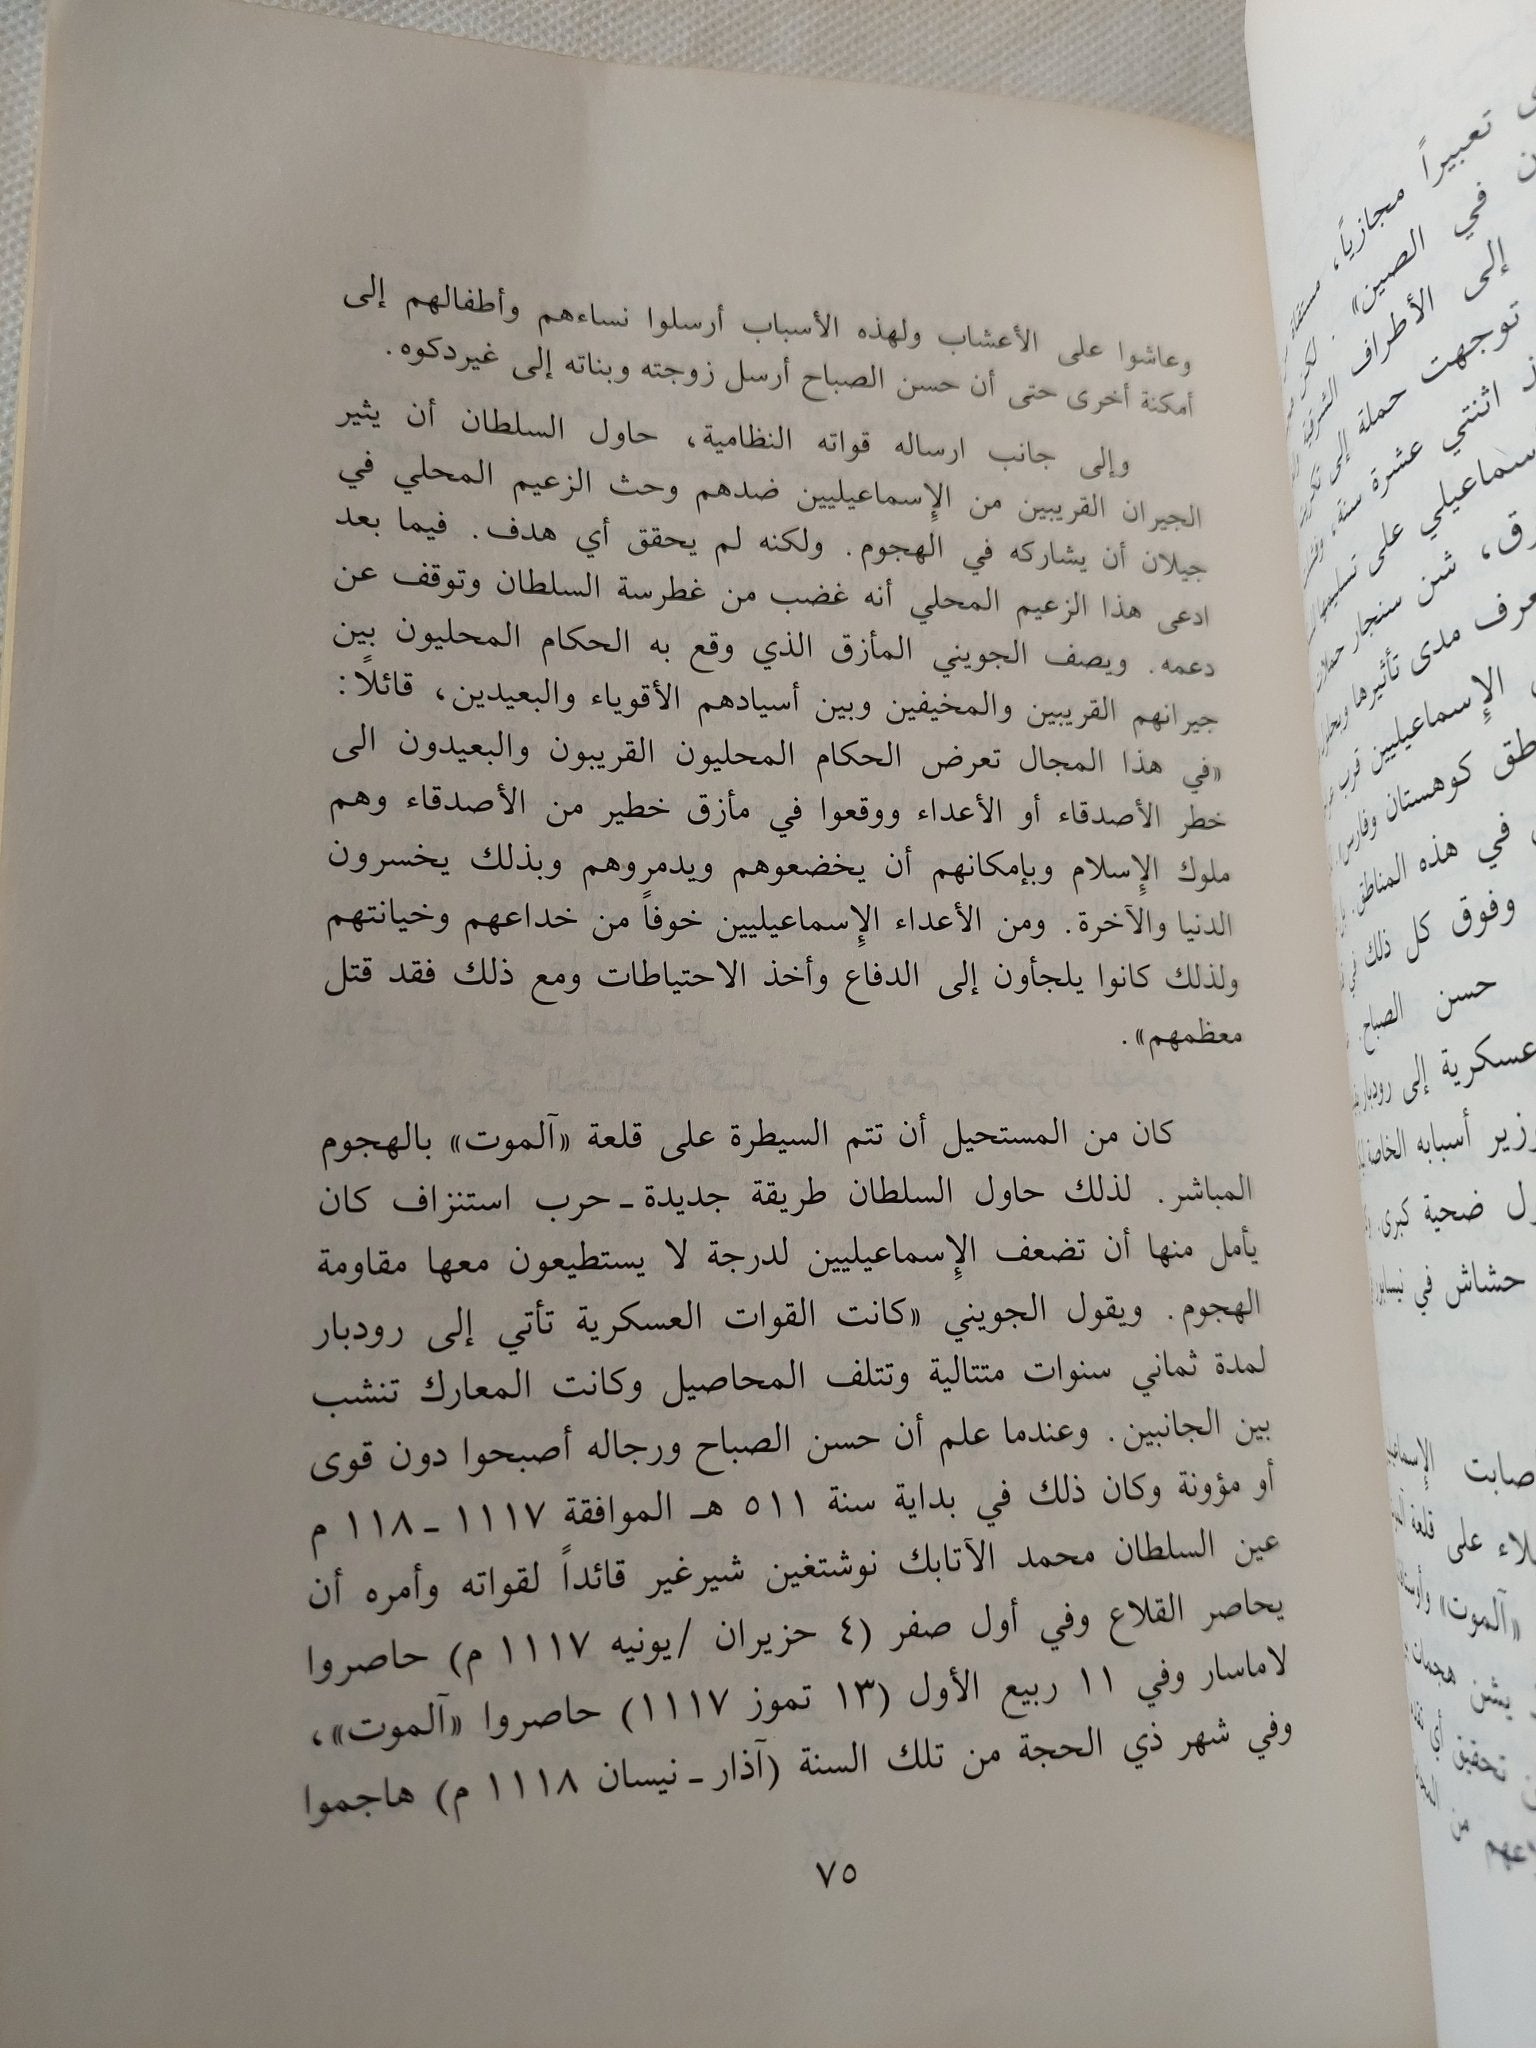 وعاشوا على الأعشاب ولهذه الأسباب أرسلوا نساءهم وأطفالهم إلى
أمكنة أخرى حتى أن حسن الصباح أرسل زوجته وبناته إلى غيردكوه.
وإلى جانب ارساله قواته النظامية، حاول السلطان أن يثير
الجيران القريبين من الإسماعيليين ضدهم وحث الزعيم المحلي في
جيلان أن يشاركه في الهجوم. ولكنه لم يحقق أي هدف. فيما بعد
ادعى هذا الزعيم المحلي أنه غضب من غطرسة السلطان وتوقف عن
دعمه. ويصف الجويني المأزق الذي وقع به الحكام المحليون بين
جيرانهم القريبين والمخيفين وبين أسيادهم الأقوياء والبعيدين، قائلاً:
«في هذا المجال تعرض الحكام المحليون القريبون والبعيدون الى
خطر الأصدقاء أو الأعداء ووقعوا في مأزق خطير من الأصدقاء وهم
ملوك الإسلام وبإمكانهم أن يخضعوهم ويدمروهم وبذلك يخسرون
الدنيا والآخرة. ومن الأعداء الإسماعيليين خوفاً من خداعهم وخيانتهم
ولذلك كانوا يلجأون إلى الدفاع وأخذ الاحتياطات ومع ذلك فقد قتل
معظمهم».
كان من المستحيل أن تتم السيطرة على قلعة «آلموت» بالهجوم
المباشر. لذلك حاول السلطان طريقة جديدة ـ حرب استنزاف كان
يأمل منها أن تضعف الإسماعيليين لدرجة لا يستطيعون معها مقاومة
الهجوم. ويقول الجويني «كانت القوات العسكرية تأتي إلى رودبار
لمدة ثماني سنوات متتالية وتتلف المحاصيل وكانت المعارك تنشب
بين الجانبين. وعندما علم أن حسن الصباح ورجاله أصبحوا دون قوى
أو مؤونة وكان ذلك في بداية سنة ٥١١ هـ الموافقة ١١١٧ ـ ١١٨ م
عين السلطان محمد الآتابك نوشتغين شيرغير قائداً لقواته وأمره أن
يحاصر القلاع وفي أول صفر (٤ حزيران /يونيه ١١١٧ م) حاصروا
لاماسار وفي ١١ ربيع الأول (١٣ تموز ١١١٧) حاصروا «آلموت»،
وفي شهر ذي الحجة من تلك السنة (آذار ـ نيسان ١١١٨ م) هاجموا
٧٥
تعبيراً مجازياً،
في الصين». لكن
إلى الأطراف الشرقية
توجهت حملة إلى
اثنتي عشرة سنة،
على تسليم
شن سنجار حملات
مدى تأثيرها
الإسماعيليين قرب
كوهستان وفارس
في هذه المناطق.
وفوق كل ذلك في
حسن الصباح.
عسكرية إلى رودبار
أسبابه الخاصة
ضحية كبرى.
حشاش في نيسابور
على قلعة
«آلموت»
يشن هجمات
تحقيق أي
من